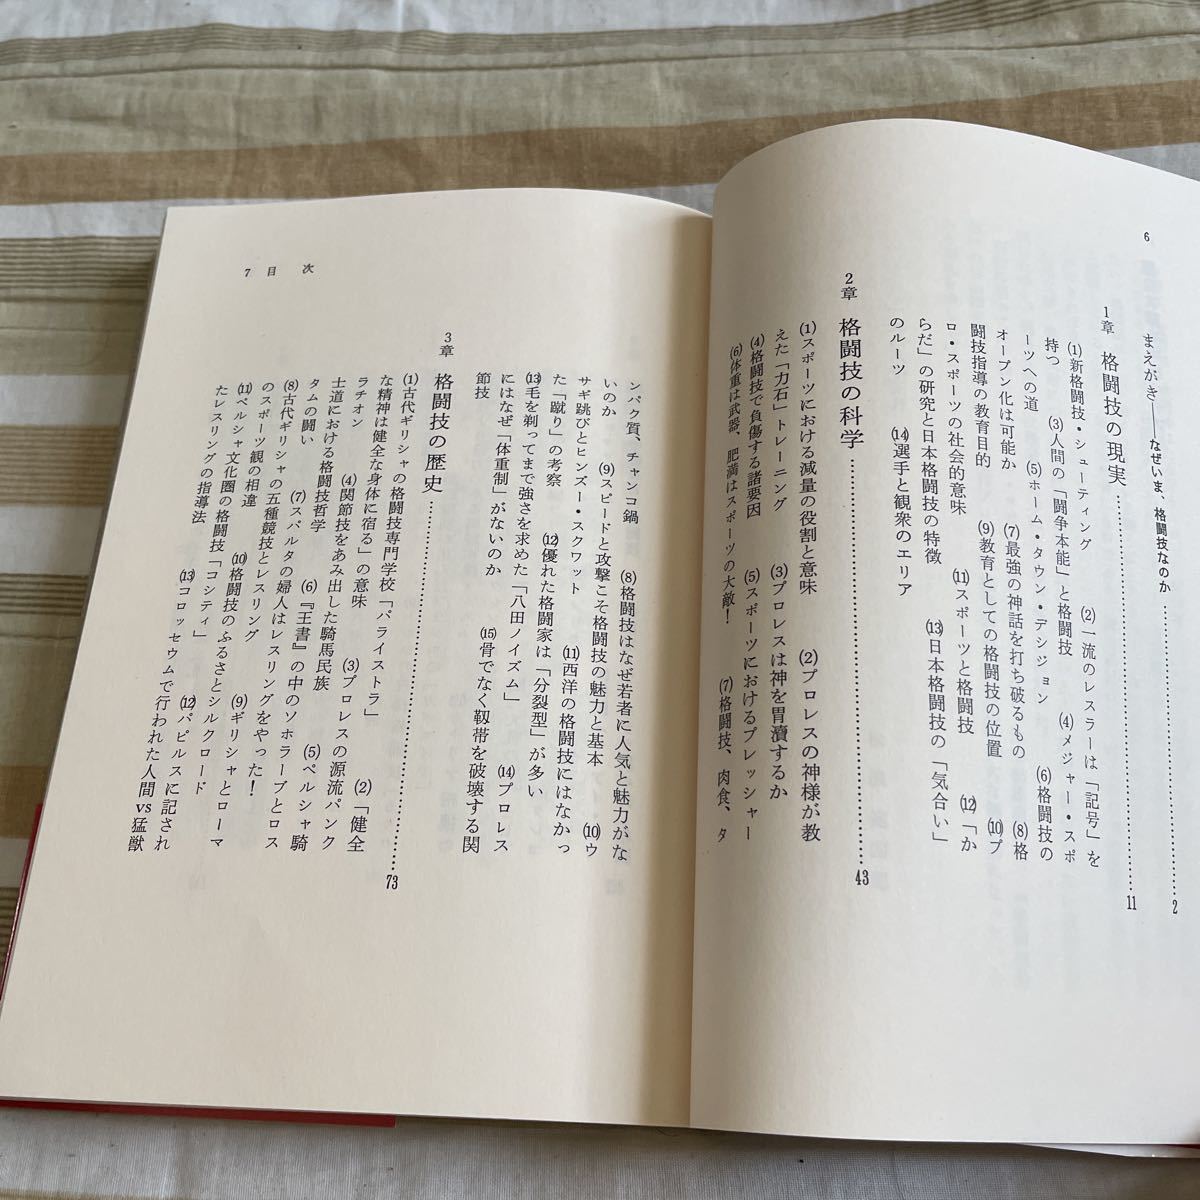 6
まえがき――なぜいま、格闘技なのか……………………2
1章 格闘技の現実……………………11
⑴新格闘技・シューティング ⑵一流のレスラーは「記号」を
持つ ⑶人間の「闘争本能」と格闘技 ⑷メジャー・スポ
ーツへの道 ⑸ホーム・タウン・デシジョン ⑹格闘技の
オープン化は可能か ⑺最強の神話を打ち破るもの ⑻格
闘技指導の教育目的 ⑼教育としての格闘技の位置 ⑽プ
ロ・スポーツの社会的意味 ⑾スポーツと格闘技 ⑿「か
らだ」の研究と日本格闘技の特徴 ⒀日本格闘技の「気合い」
のルーツ ⒁選手と観衆のエリア
2章 格闘技の科学……………………43
⑴スポーツにおける減量の役割と意味 ⑵プロレスの神様が教
えた「力石」トレーニング ⑶プロレスは神を冒瀆するか
⑷格闘技で負傷する諸要因 ⑸スポーツにおけるプレッシャー
⑹体重は武器、肥満はスポーツの大敵！ ⑺格闘技、肉食、タ
7 目次
ンパク質、チャンコ鍋 ⑻格闘技はなぜ若者に人気と魅力がな
いのか ⑼スピードと攻撃こそ格闘技の魅力と基本 ⑽ウ
サギ跳びとヒンズー・スクワット ⑾西洋の格闘技にはなかっ
た「蹴り」の考察 ⑿優れた格闘家は「分裂型」が多い
⒀毛を剃ってまで強さを求めた「八田ノイズム」 ⒁プロレス
にはなぜ「体重制」がないのか ⒂骨でなく靱帯を破壊する関
節技
3章 格闘技の歴史……………………73
⑴古代ギリシャの格闘技専門学校「パライストラ」 ⑵「健全
な精神は健全な身体に宿る」の意味 ⑶プロレスの源流パンク
ラチオン ⑷関節技をあみ出した騎馬民族 ⑸ペルシャ騎
士道における格闘技哲学 ⑹『王書』の中のソホラーブとロス
タムの闘い ⑺スパルタの婦人はレスリングをやった！
⑻古代ギリシャの五種競技とレスリング ⑼ギリシャとローマ
のスポーツ観の相違 ⑽格闘技のふるさとシルクロード
⑾ペルシャ文化圏の格闘技「コシティ」 ⑿パピルスに記され
たレスリングの指導法 ⒀コロッセウムで行われた人間vs猛獣